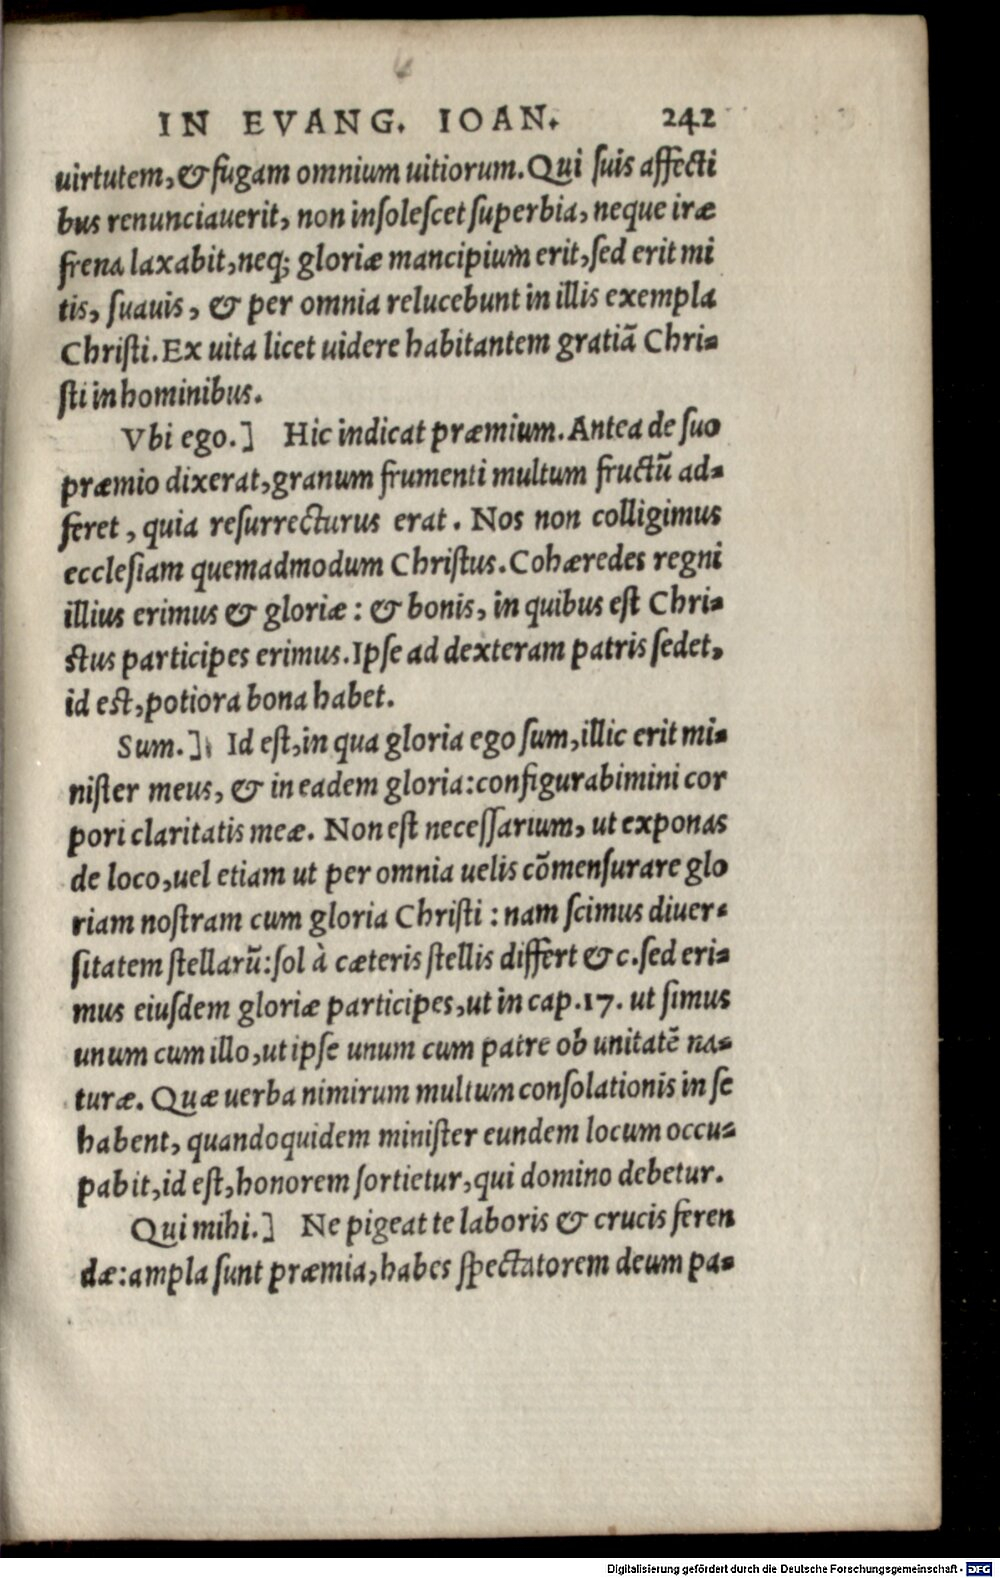 IN EVANG. IOAN. 242
uirtutem, & fugam omnium uitiorum. Qui suis affecti
bus renunciauerit, non insolescet superbia, neque iræ
frena laxabit, neq; gloriæ mancipium erit, sed erit mi
tis, suauis, & per omnia relucebunt in illis exempla
Christi. Ex uita licet uidere habitantem gratiā Chri-
sti in hominibus.
Vbi ego.] Hic indicat præmium. Antea de suo
præmio dixerat, granum frumenti multum fructū ad-
feret, quia resurrecturus erat. Nos non colligimus
ecclesiam quemadmodum Christus. Cohæredes regni
illius erimus & gloriæ: & bonis, in quibus est Chri-
stus participes erimus. Ipse ad dexteram patris sedet,
id est, potiora bona habet.
Sum.] Id est, in qua gloria ego sum, illic erit mi-
nister meus, & in eadem gloria: configurabimini cor
pori claritatis meæ. Non est necessarium, ut exponas
de loco, uel etiam ut per omnia uelis cōmensurare glo
riam nostram cum gloria Christi: nam scimus diuer-
sitatem stellarū: sol à cæteris stellis differt & c. sed eri-
mus eiusdem gloriæ participes, ut in cap. 17. ut simus
unum cum illo, ut ipse unum cum patre ob unitatē na-
turæ. Quæ uerba nimirum multum consolationis in se
habent, quandoquidem minister eundem locum occu-
pabit, id est, honorem sortietur, qui domino debetur.
Qui mihi.] Ne pigeat te laboris & crucis feren
dæ: ampla sunt præmia, habes spectatorem deum pa-
Digitalisierung gefördert durch die Deutsche Forschungsgemeinschaft - DFG